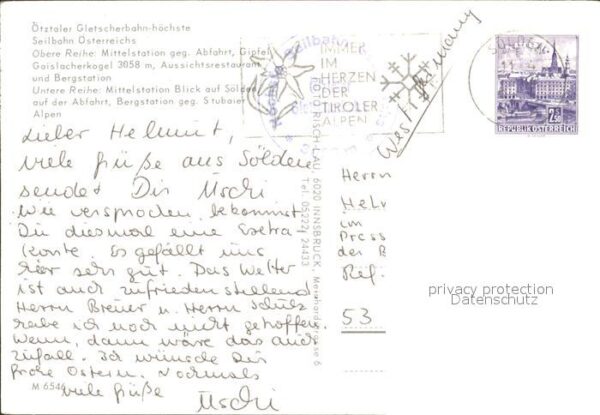 Ötztaler Gletscherbahn-höchste
Seilbahn Österreichs
Obere Reihe: Mittelstation geg. Abfahrt, Gipfel
Gaislacherkogel 3058 m, Aussichtsrestaurant
und Bergstation
Untere Reihe: Mittelstation Blick auf Sölden
auf der Abfahrt, Bergstation geg. Stubaier
Alpen
Lieber Helmut,
viele Grüße aus Sölden
sendet Dir Uschi
Wie versprochen bekommst
Du diesmal eine Extra
Karte. Es gefällt uns
hier sehr gut. Das Wetter
ist auch zufriedenstellend
Herrn Breuer u. Herrn Schulz
habe ich noch nicht getroffen.
Wenn, dann wäre das auch
Zufall. Ich wünsche Dir
frohe Ostern. Nochmals
viele Grüße
Uschi
M 6546
FOTO RISCH-LAU, 6020 INNSBRUCK, Meinhardstrasse 6
Tel. 05222/24433
Seilbahn
IMMER
IM
HERZEN
DER
TIROLER
ALPEN
SÖLDEN
Westgermany
2.50
REPUBLIK ÖSTERREICH
Herrn
im
Press
Ref.
53
privacy protection
Datenschutz